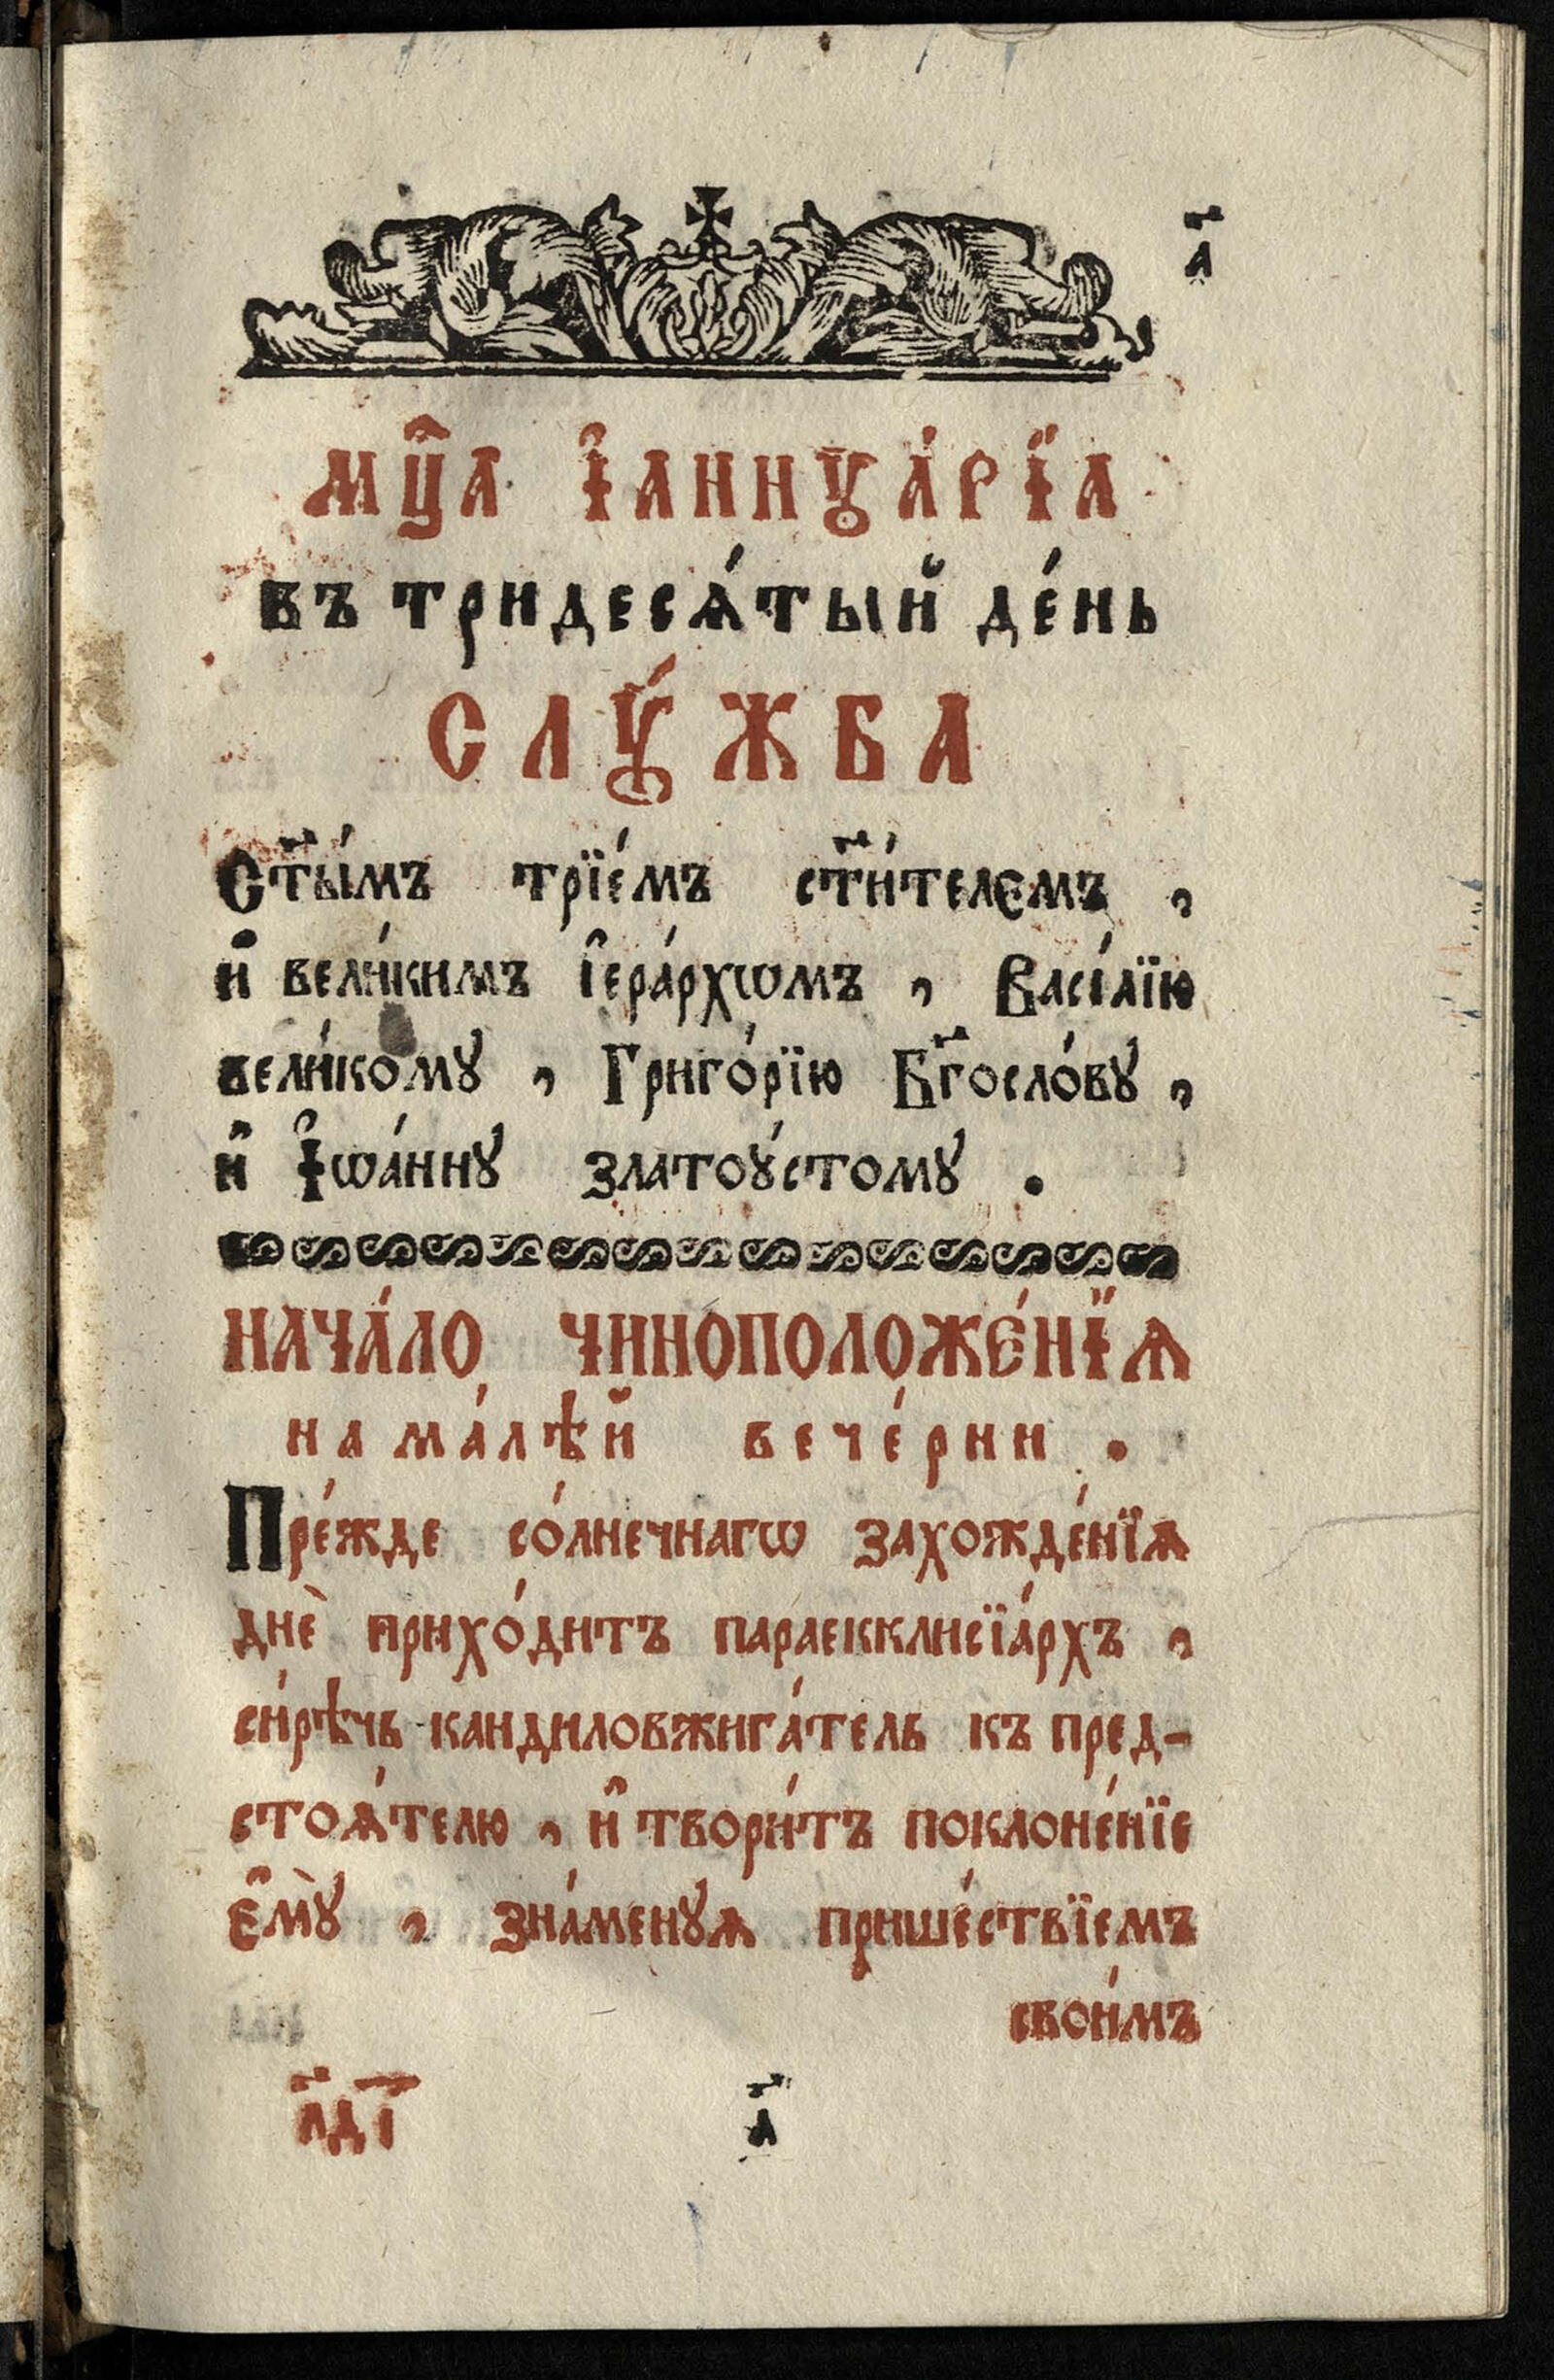 а҃
Мцⷭ҇а і҆аннꙋа́рїа
въ тридесѧ́тый де́нь
слꙋ́жба
Ст҃ы́мъ трїє́мъ ст҃и́телємъ ,
и҆ вели́кимъ і҆ера́рхѡмъ , Васі́лїю
вели́комꙋ , Григо́рїю Бг҃осло́вꙋ ,
и҆ І҆ѡа́ннꙋ златоꙋ́стомꙋ .
Нача́ло чиноположе́нїѧ
на ма́лѣй вече́рни .
Пре́жде со́лнечнагѡ захожде́нїѧ
днѐ прихо́дитъ параекклисїа́рхъ ,
си́рѣчь кандиловжига́тель къ пред-
стоѧ́телю , и҆ твори́тъ поклоне́нїе
є҆мꙋ̀ , зна́менꙋѧ прише́ствїемъ
свои́мъ
а҃